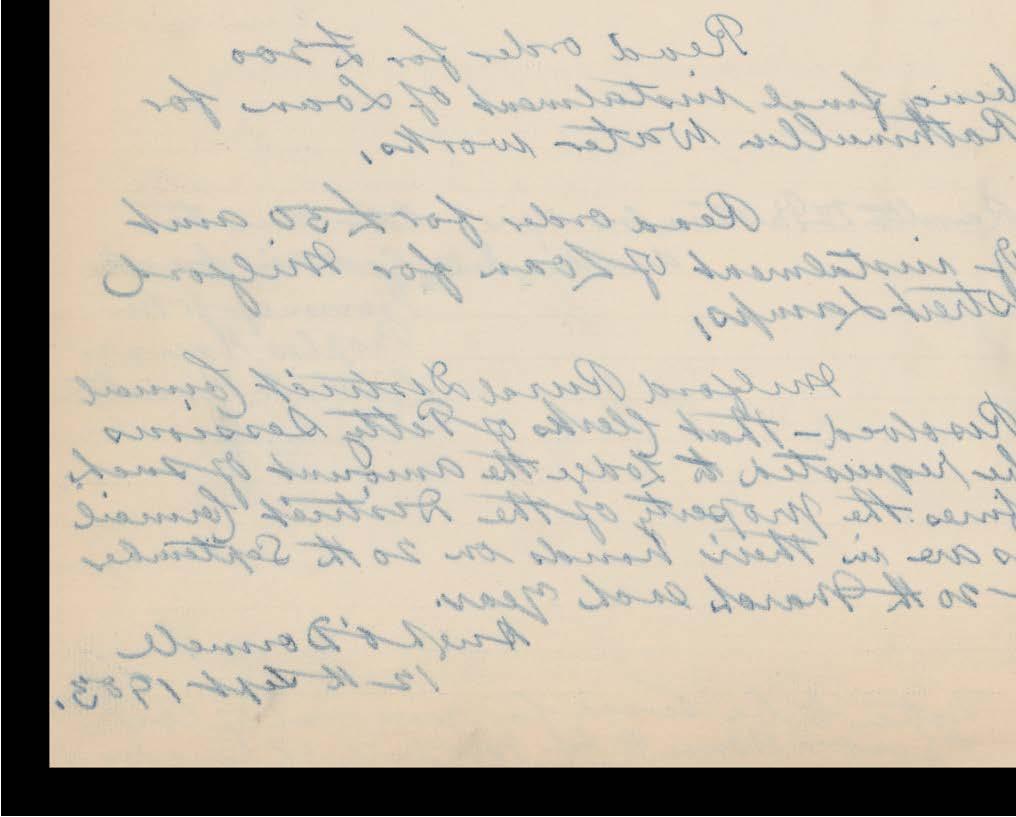 Read order for £200
being final instalment of Loan for
Rathmullen Water works.
Read order for £50 amt
of instalment of Loan for Milford
Street Lamps,
Milford Rural District Council
Resolved – that Clerks of Petty Sessions
be requested to lodge the amount of such
fines the property of the District Council
as are in their hands on 20th September
– 20th March each year.
Hugh O'Donnell
12th Sept 1903.